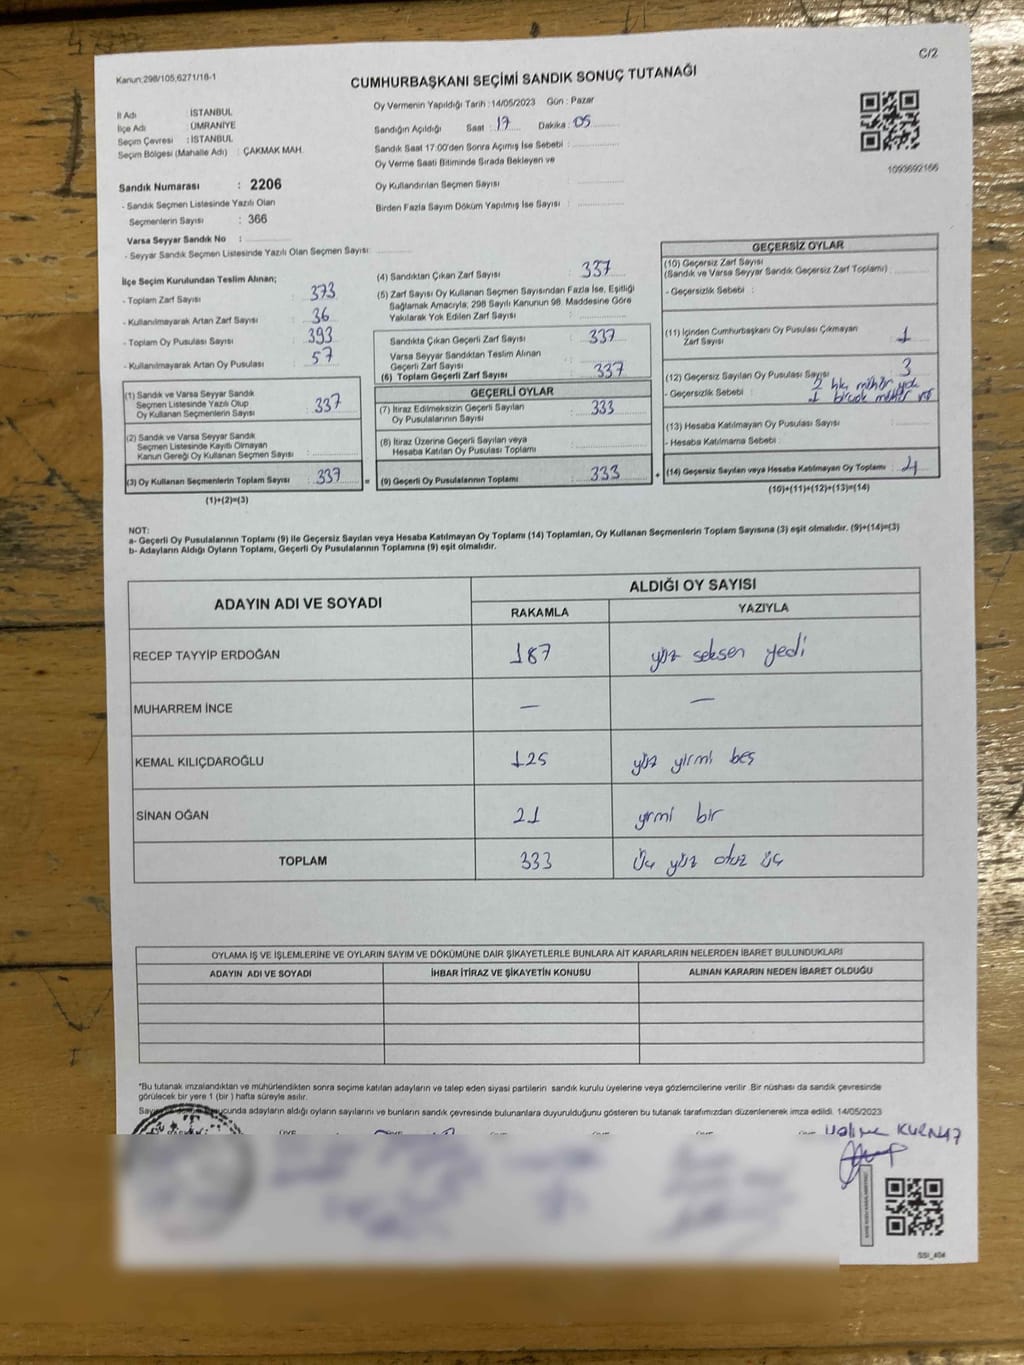 C/2
Kanun:298/105,6271/16-1
CUMHURBAŞKANI SEÇİMİ SANDIK SONUÇ TUTANAĞI
İl Adı : İSTANBUL
İlçe Adı : ÜMRANİYE
Seçim Çevresi : İSTANBUL
Seçim Bölgesi (Mahalle Adı) : ÇAKMAK MAH.
Oy Vermenin Yapıldığı Tarih : 14/05/2023 Gün : Pazar
Sandığın Açıldığı Saat : 17 Dakika : 05
Sandık Saat 17:00'den Sonra Açımış İse Sebebi :
Oy Verme Saati Bitiminde Sırada Bekleyen ve
Oy Kullandırılan Seçmen Sayısı :
Birden Fazla Sayım Döküm Yapılmış İse Sayısı :
1093692166
Sandık Numarası : 2206
- Sandık Seçmen Listesinde Yazılı Olan
Seçmenlerin Sayısı : 366
Varsa Seyyar Sandık No :
- Seyyar Sandık Seçmen Listesinde Yazılı Olan Seçmen Sayısı:
İlçe Seçim Kurulundan Teslim Alınan;
- Toplam Zarf Sayısı : 373
- Kullanılmayarak Artan Zarf Sayısı : 36
- Toplam Oy Pusulası Sayısı : 393
- Kullanılmayarak Artan Oy Pusulası : 57
(1) Sandık ve Varsa Seyyar Sandık
Seçmen Listesinde Yazılı Olup
Oy Kullanan Seçmenlerin Sayısı : 337
(2) Sandık ve Varsa Seyyar Sandık
Seçmen Listesinde Kayıtlı Olmayan
Kanun Gereği Oy Kullanan Seçmen Sayısı :
(3) Oy Kullanan Seçmenlerin Toplam Sayısı : 337 =
(1)+(2)=(3)
(4) Sandıktan Çıkan Zarf Sayısı : 337
(5) Zarf Sayısı Oy Kullanan Seçmen Sayısından Fazla İse, Eşitliği
Sağlamak Amacıyla; 298 Sayılı Kanunun 98. Maddesine Göre
Yakılarak Yok Edilen Zarf Sayısı :
Sandıkta Çıkan Geçerli Zarf Sayısı : 337
Varsa Seyyar Sandıktan Teslim Alınan
Geçerli Zarf Sayısı :
(6) Toplam Geçerli Zarf Sayısı : 337
GEÇERLİ OYLAR
(7) İtiraz Edilmeksizin Geçerli Sayılan
Oy Pusulalarının Sayısı : 333
(8) İtiraz Üzerine Geçerli Sayılan veya
Hesaba Katılan Oy Pusulası Toplamı :
(9) Geçerli Oy Pusulalarının Toplamı : 333 +
GEÇERSİZ OYLAR
(10) Geçersiz Zarf Sayısı
(Sandık ve Varsa Seyyar Sandık Geçersiz Zarf Toplamı) :
- Geçersizlik Sebebi :
(11) İçinden Cumhurbaşkanı Oy Pusulası Çıkmayan
Zarf Sayısı : 1
(12) Geçersiz Sayılan Oy Pusulası Sayısı : 3
- Geçersizlik Sebebi : 2 mühür yok
1 mühür
(13) Hesaba Katılmayan Oy Pusulası Sayısı :
- Hesaba Katılmama Sebebi :
(14) Geçersiz Sayılan veya Hesaba Katılmayan Oy Toplamı : 4
(10)+(11)+(12)+(13)=(14)
NOT:
a- Geçerli Oy Pusulalarının Toplamı (9) ile Geçersiz Sayılan veya Hesaba Katılmayan Oy Toplamı (14) Toplamları, Oy Kullanan Seçmenlerin Toplam Sayısına (3) eşit olmalıdır. (9)+(14)=(3)
b- Adayların Aldığı Oyların Toplamı, Geçerli Oy Pusulalarının Toplamına (9) eşit olmalıdır.
ADAYIN ADI VE SOYADI
ALDIĞI OY SAYISI
RAKAMLA YAZIYLA
RECEP TAYYİP ERDOĞAN 187 yüz seksen yedi
MUHARREM İNCE — —
KEMAL KILIÇDAROĞLU 125 yüz yirmi beş
SİNAN OĞAN 21 yirmi bir
TOPLAM 333 üç yüz otuz üç
OYLAMA İŞ VE İŞLEMLERİNE VE OYLARIN SAYIM VE DÖKÜMÜNE DAİR ŞİKAYETLERLE BUNLARA AİT KARARLARIN NELERDEN İBARET BULUNDUKLARI
ADAYIN ADI VE SOYADI İHBAR İTİRAZ VE ŞİKAYETİN KONUSU ALINAN KARARIN NEDEN İBARET OLDUĞU
*Bu tutanak imzalandıktan ve mühürlendikten sonra seçime katılan adayların ve talep eden siyasi partilerin sandık kurulu üyelerine veya gözlemcilerine verilir. Bir nüshası da sandık çevresinde
görülecek bir yere 1 (bir ) hafta süreyle asılır.
ucunda adayların aldığı oyların sayılarını ve bunların sandık çevresinde bulunanlara duyurulduğunu gösteren bu tutanak tarafımızdan düzenlenerek imza edildi. 14/05/2023
KURNAZ
SSI_404